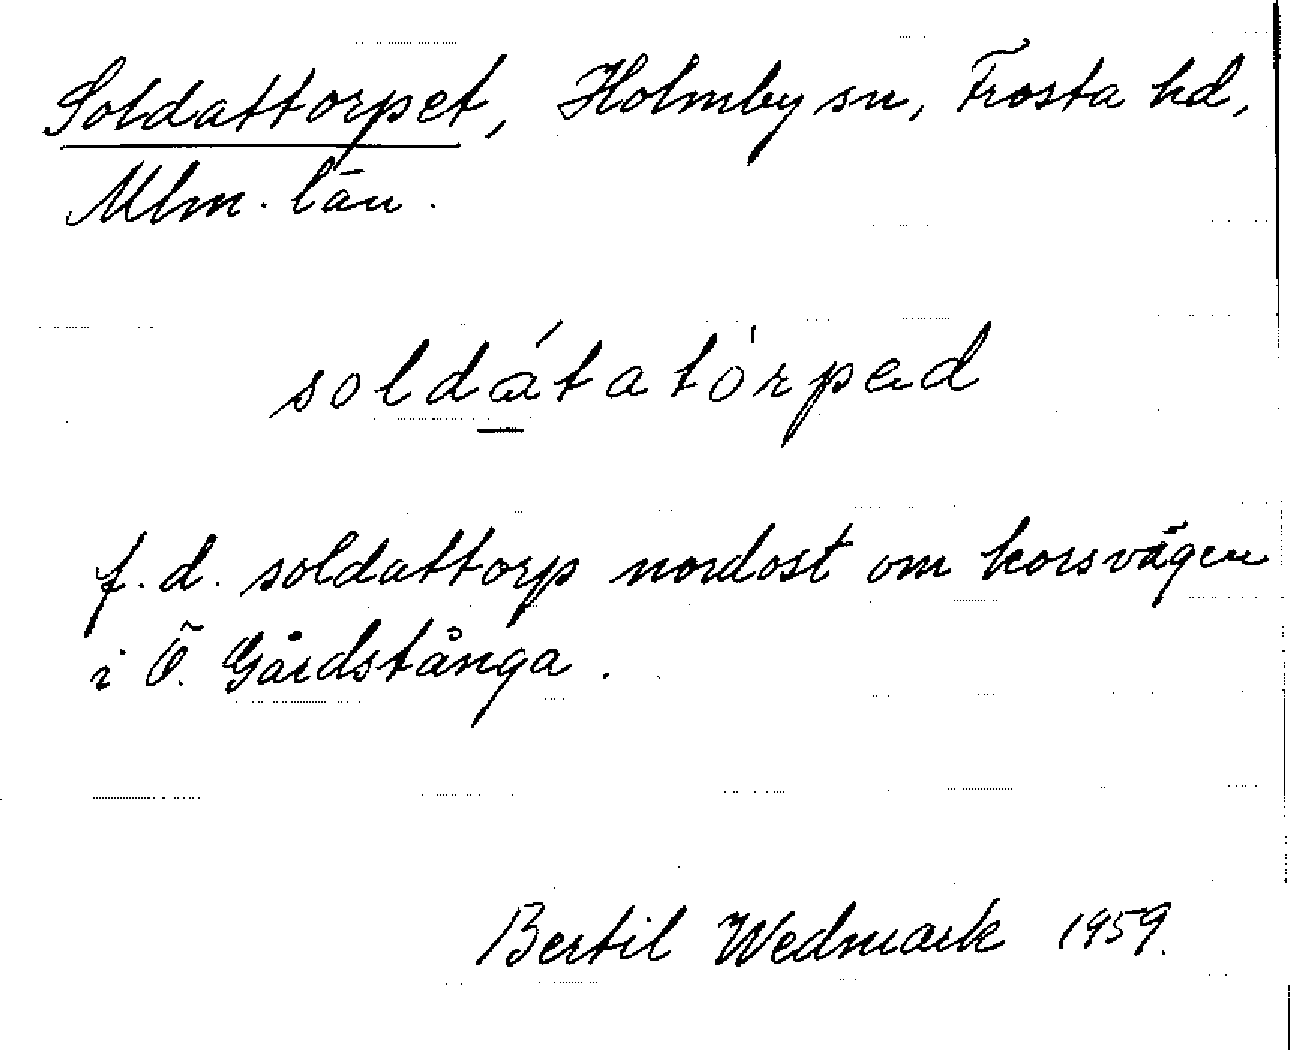 Soldattorpet, Holmby sn, Frosta hd,
Mlm. län.
soldátatòrped
f. d. soldattorp nordost om korsvägen
i Ö. Gårdstånga.
Bertil Wedmark 1959.